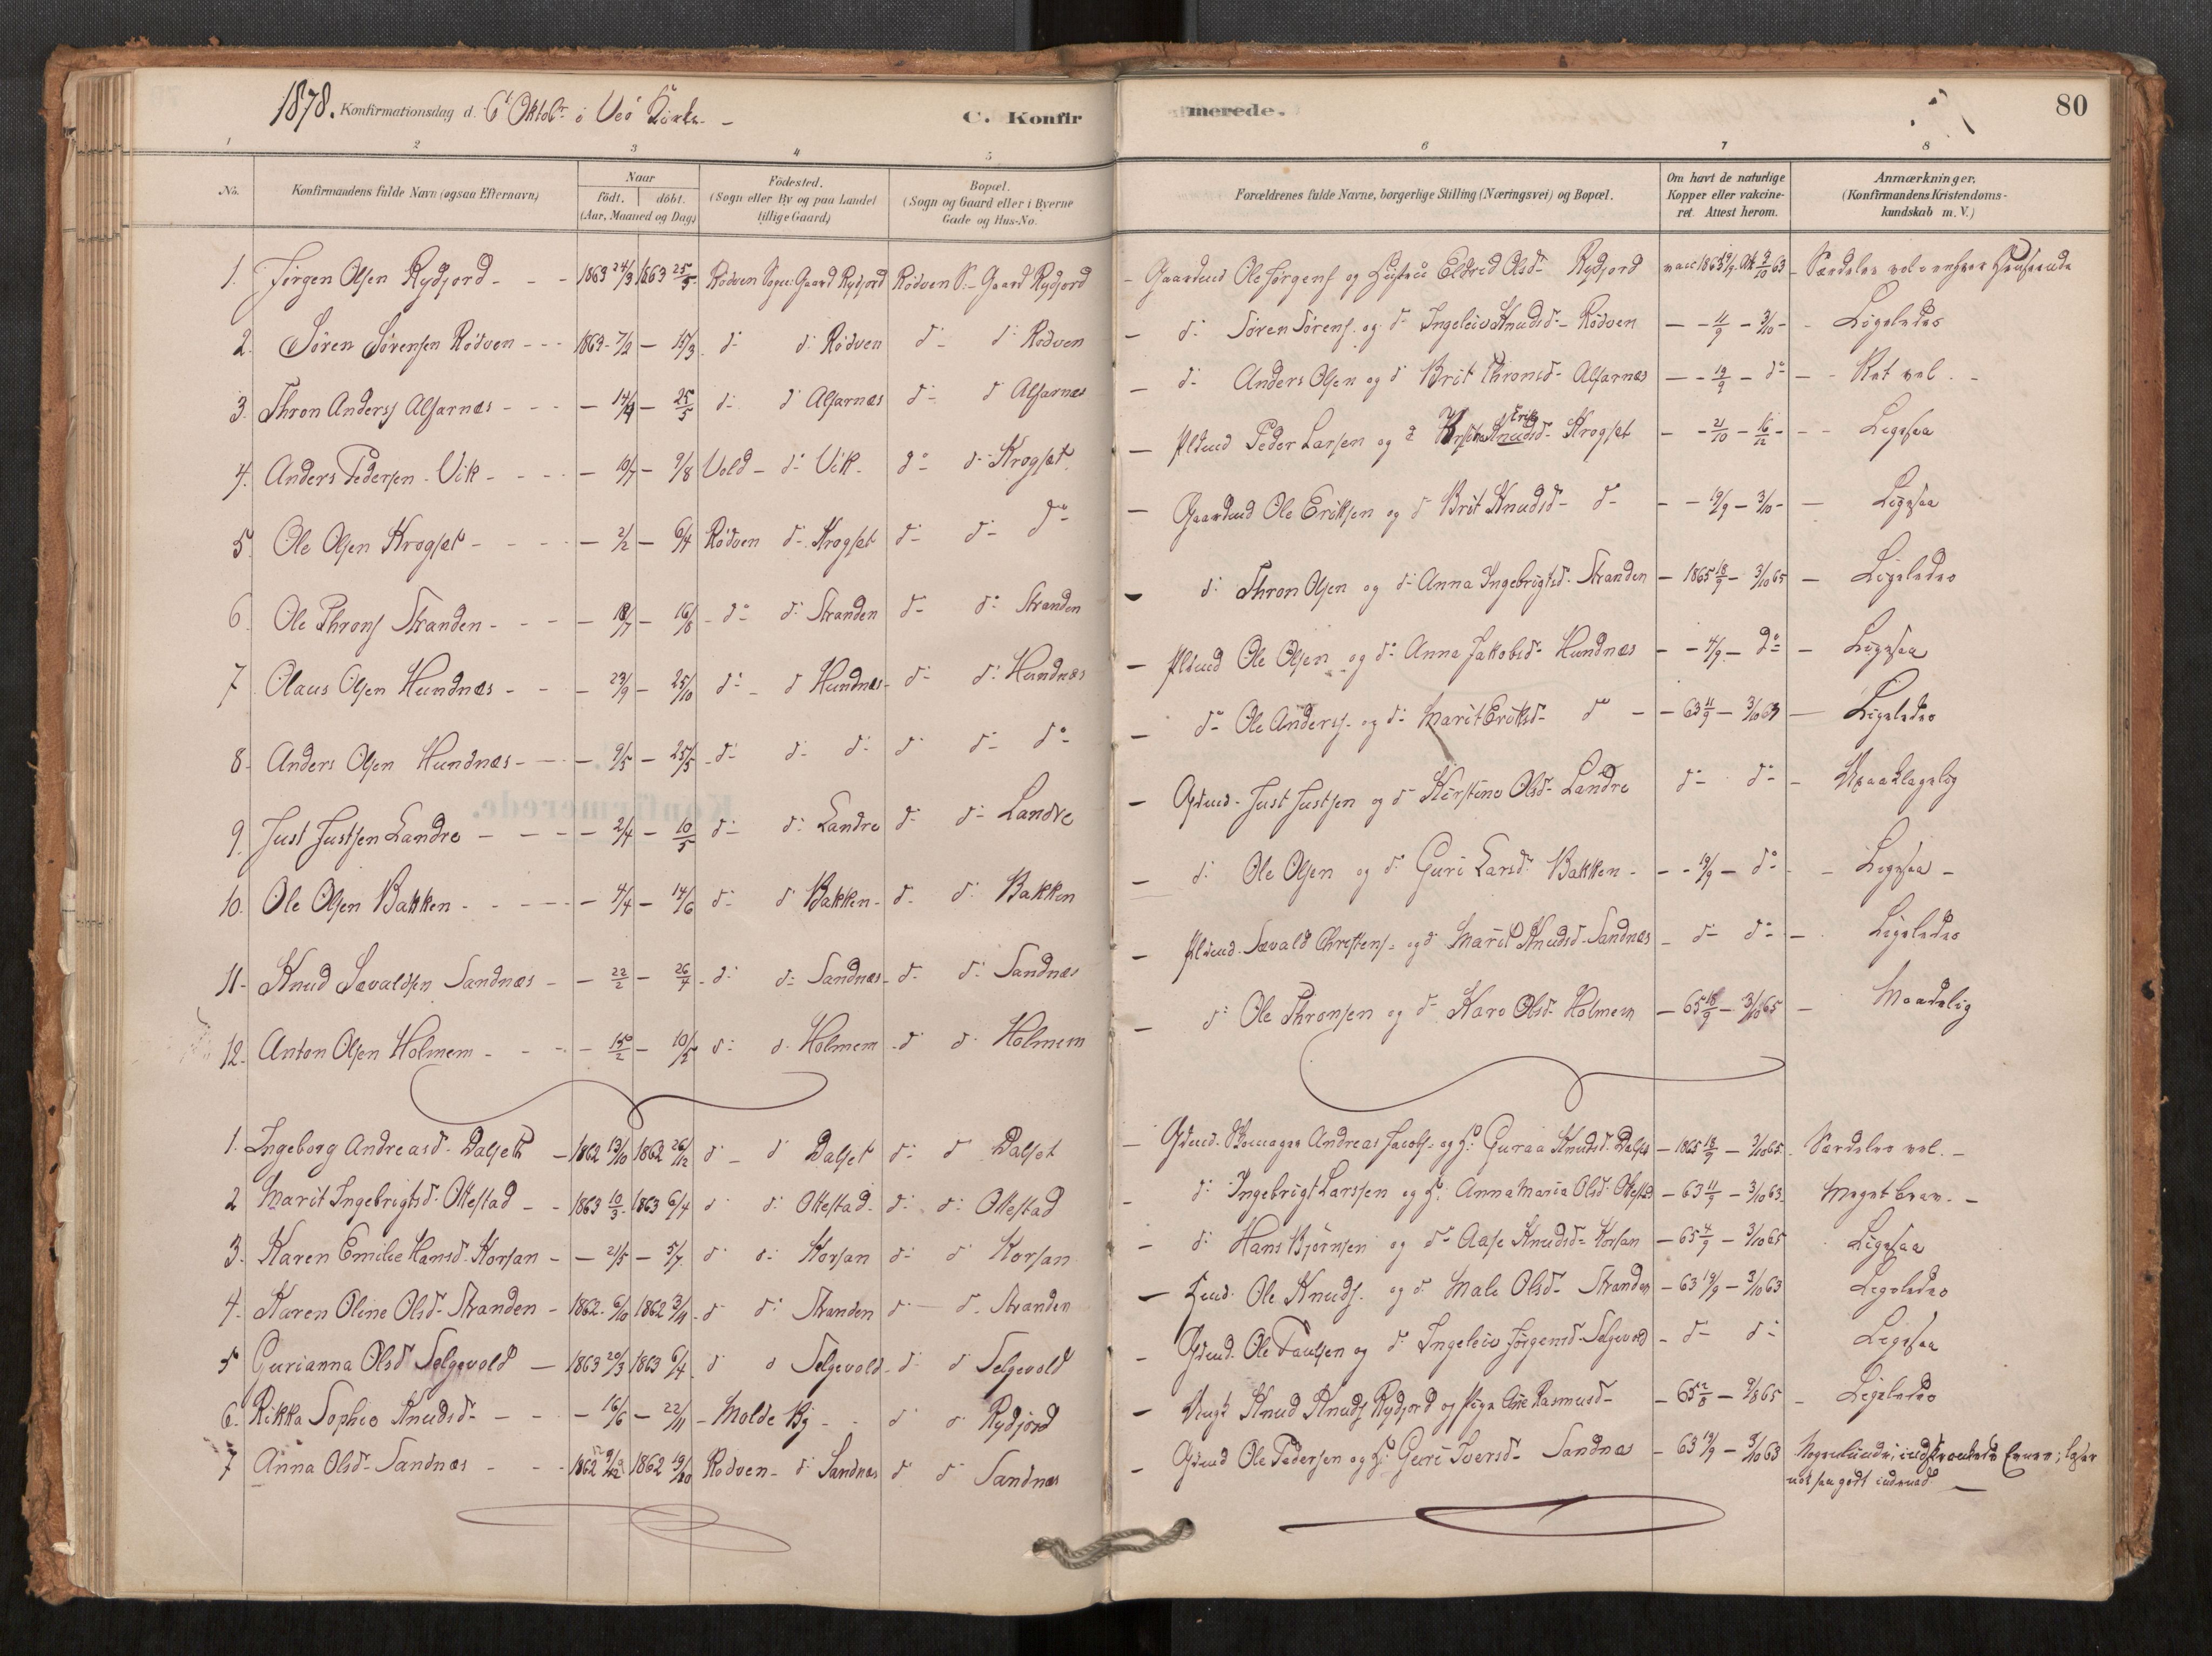 1878. Konfirmationsdag d. 6t Oktobr i Veø Kirke. –
C. Konfirmerede.
80
1 2 3 4 5 6 7 8
No. Konfirmandens fulde Navn (ogsaa Efternavn) Naar født. døbt. (Aar, Maaned og Dag) Fødested. (Sogn eller By og paa Landet tillige Gaard) Bopæl. (Sogn og Gaard eller i Byerne Gade og Hus-No. Forældrenes fulde Navne, borgerlige Stilling (Næringsvei) og Bopæl. Om havt de naturlige Kopper eller vakcineret. Attest herom. Anmærkninger. (Konfirmandens Kristendomskundskab m. V.)
1. Jørgen Olsen Rydjord - - 1863 24/3 1863 25/5 Rødven Sogn: Gaard Rydjord Rødven S. - Gaard Rydjord - Gaardmd Ole Jørgens og Hustru Eldred Olsd- Rydjord vacc 1863 19/9 Att 3/10 63 - Særdeles vel i enhver Henseende
2. Søren Sørensen Rødven - - 1863 7/2 - 15/3 d- d: Rødven d- d: Rødven - d: Søren Sørens. og d- Ingeleiv Knudsd- Rødven - - 11/9 - 3/10 - Ligeledes
3. Thron Anders Alfarnæs - - - 14/4 - 25/5 d- d Alfarnæs d- d Alfarnæs - d- Anders Olsen og d Brit Thronsd- Alfarnæs - - 19/9 - do - Ret vel. -
4. Anders Pedersen Vik - - - 10/7 - 9/8 Vold - d- Vik - do d- Krogsæt. - Pldmd Peder Larsen og d Kirsten Knudsd- Eriks Krogsæt - - 21/10 - 16/12 - - Ligesaa
5. Ole Olsen Krogsæt - - - 2/2 - 6/4 Rødven d- Krogsæt d- d- do - Gaardmd Ole Eriksen og d Brit Knudsd- d- - - 19/9 - 3/10 - - Ligesaa
6. Ole Throns Stranden - - - 18/7 - 16/8 - do d: Stranden d- do Stranden - d: Thron Olsen og d- Anna Ingebrigtsd- Stranden - 1865 18/9 - 3/10 65 - Ligeledes
7 Olaus Olsen Hundnæs - - - 23/9 - 25/10 d- - d Hundnæs - d- d: Hundnæs - Pldmd Ole Olsen og d- Anna Jakobsd- Hundnæs - - 4/9 - do - Ligesaa
8. Anders Olsen Hundnæs - - - 9/5 - 25/5 - d- d- d- d d- do - do Ole Anders. og d- Marit Eriksd- do - - 63 11/9 - 3/10 63 - Ligeledes
9. Just Justsen Landre - - - 2/4 - 10/5 d- d- Landre d- d- Landre - Gdmd. Just Justsen og d- Kirstine Olsd- Landre d- d- - Upaaklagelig
10. Ole Olsen Bakken - - - 4/4 - 14/6 d- d Bakken - d- d: Bakken - d: Ole Olsen og d- Guri Larsd- Bakken - - - 19/9 - do - Ligesaa -
11- Knud Sævaldsen Sandnæs - - 22/2 - 26/4 - d: d- Sandnæs - d- d: Sandnæs - Pldmd. Sævald Christens - og d Marit Knudsd- Sandnæs - d- d- - Ligeledes
12. Anton Olsen Holmem - - - 15/2 - 10/5 d- d. Holmem - d d- Holmem - d: Ole Thronsen og d- Karo Olsd- Holmem - 65 18/9 - 3/10 65 - Maadelig
1. Ingeborg Andreasd- Dalset - 1862 13/10 1862 26/12 d - d Dalset d: d Dalset - Gdmd. Andreas Jacobs - og H: Guraa Knudsd- Dalset - 1865 18/9 - 3/10 65 - Særdeles vel. -
2 Marit Ingebrigtsd- Ottestad - - 1863 10/3 1863 6/4 d d: Ottestad - d: d: Ottestad - d: Ingebrigt Larssen og H: Anna Maria Olsd- Ottestad - 63 11/9 - 3/10 63 - Meget brav. -
3. Karen Emilie Hansd- Korsan - - 21/5 - 5/7 d d- Korsan d- d Korsan - d: Hans Bjørnsen og d- Aase Knudsd- Korsan - 65 4/9 - 3/10 65 Ligesaa
4. Karen Oline Olsd- Stranden - 1862. 6/10 1862 3/11 - d d: Stranden d - d. Stranden - Hmd. Ole Knuds. og d: Male Olsd- Stranden - 63 19/9 - 3/10 63 Ligeledes
5 Gurianna Olsd Selgevold - 1863 20/3 1863 6/4 d d Selgevold - d: d Selgevold - Gdmd. Ole Paulsen og d: Ingeleiv Jørgensd- Selgevold - d- d- Ligesaa
6. Rikka Sophie Knudsd- - - - 16/6 - 22/11 - Molde By - - d d- Rydjord - Ungk Knud Knuds Rydjord og Pige Ane Rasmusd- - 65 2/8 - 9/8 65 - Ligeledes
7 Anna Olsd- Sandnæs - - - 1862 1862 19/10 Rødven - d: Sandnæs d d Sandnæs - Gdmd Ole Pedersen og H: Guri Iversd- Sandnæs - 63 19/9 - 3/10 63 Nogenlunde; indskrænkede Evner; læser nok saa godt indenad -